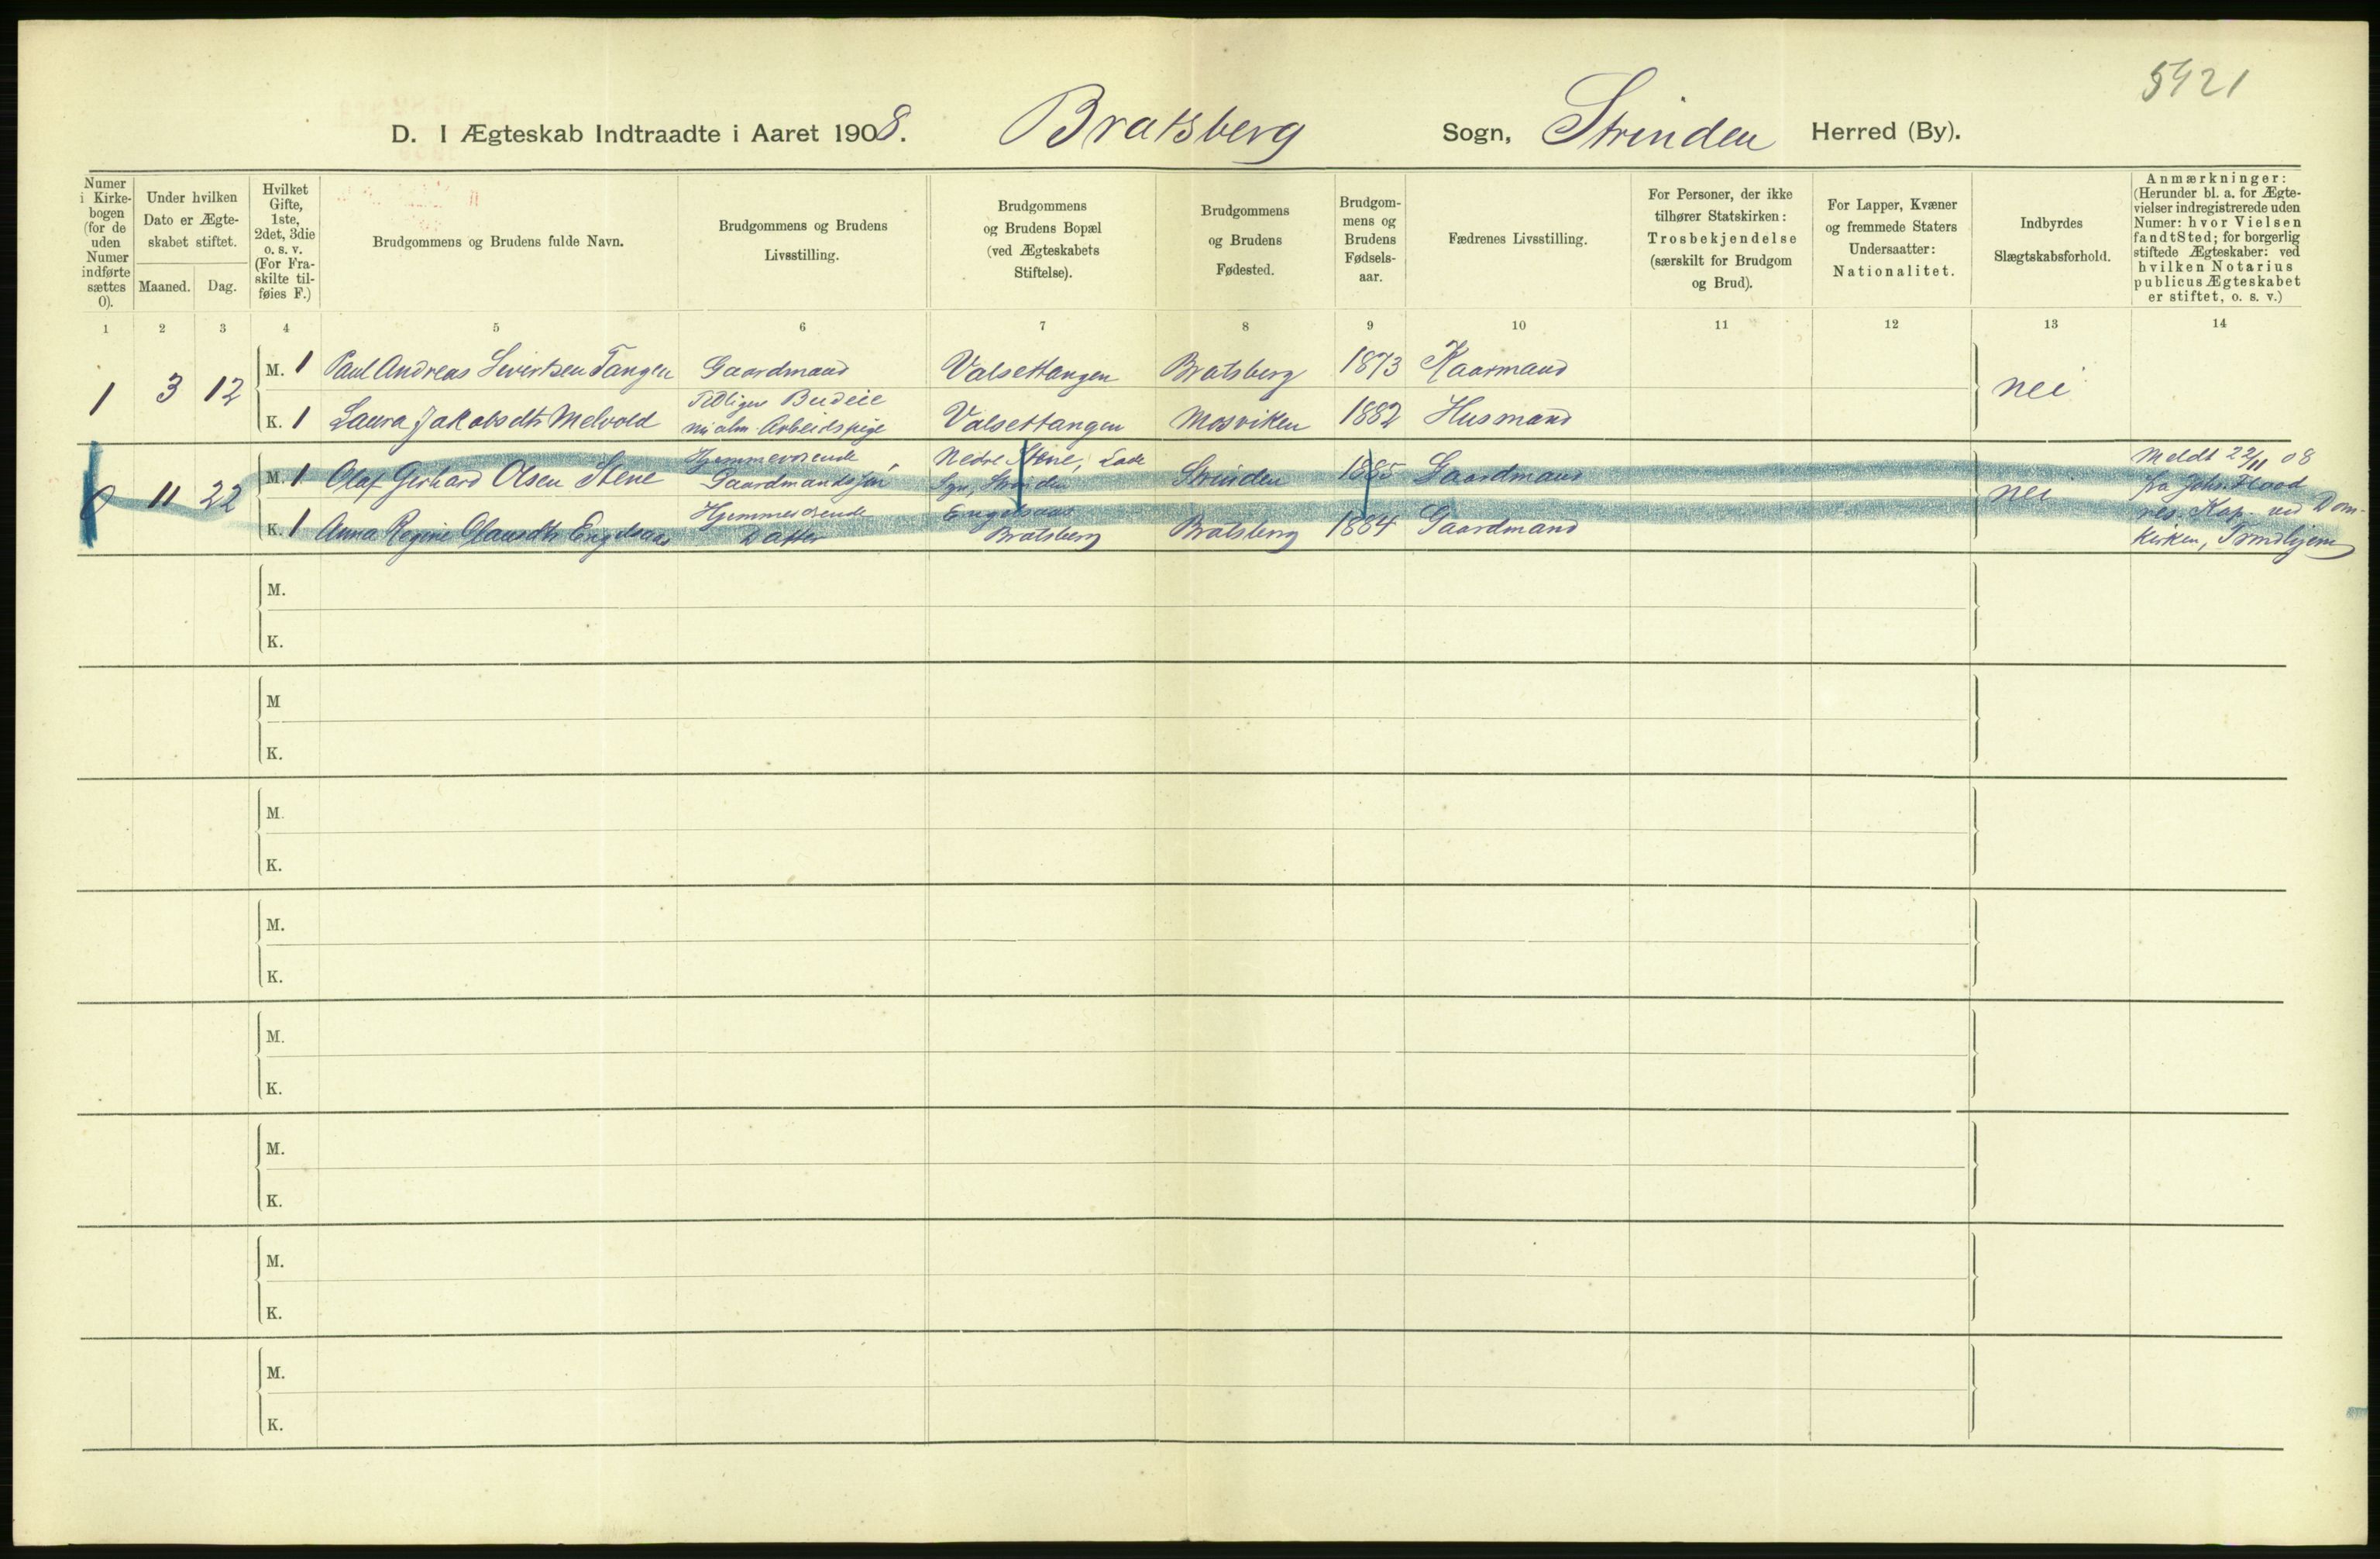 5421
D. I Ægteskab Indtraadte i Aaret 1908. Bratsberg Sogn, Strinden Herred (By).
Numer i Kirkebogen (for de uden Numer indførte sættes 0).
Under hvilken Dato er Ægteskabet stiftet.
Maaned. Dag.
Hvilket Gifte, 1ste, 2det, 3die o. s. v. (For Fraskilte tilføies F.)
Brudgommens og Brudens fulde Navn.
Brudgommens og Brudens Livsstilling.
Brudgommens og Brudens Bopæl (ved Ægteskabets Stiftelse).
Brudgommens og Brudens Fødested.
Brudgommens og Brudens Fødselsaar.
Fædrenes Livsstilling.
For Personer, der ikke tilhører Statskirken: Trosbekjendelse (særskilt for Brudgom og Brud).
For Lapper, Kvæner og fremmede Staters Undersaatter: Nationalitet.
Indbyrdes Slægtskabsforhold.
Anmærkninger: (Herunder bl. a. for Ægtevielser indregistrerede uden Numer: hvor Vielsen fandt Sted; for borgerlig stiftede Ægteskaber: ved hvilken Notarius publicus Ægteskabet er stiftet, o. s. v.)
1 2 3 4 5 6 7 8 9 10 11 12 13 14
1 3 12 M. 1 Paul Andreas Sivertsen Tangen Gaardmand Valsettangen Bratsberg 1873 Kaarmand nei
K. 1 Laura Jakobsdtr Melvold Tidligere Budeie nu alm. Arbeidspige Valsettangen Mosviken 1882 Husmand
0 11 22 M. 1 Olaf Gerhard Olsen Stene Hjemmeværende Gaardmandssøn Nedre Stene, Lade Sgn, Strinden Strinden 1885 Gaardmand nei Meldt 22/11 08
K. 1 Anna Regine Olausdtr Engelsaas Hjemmeværende Datter Engelsaas Bratsberg Bratsberg 1884 Gaardmand
fra Johs. Flood
res. Kap. ved Dom-
kirken, Trondhjem
M.
K.
M
K.
M.
K.
M.
K.
M.
K.
M.
K.
M.
K.
M.
K.